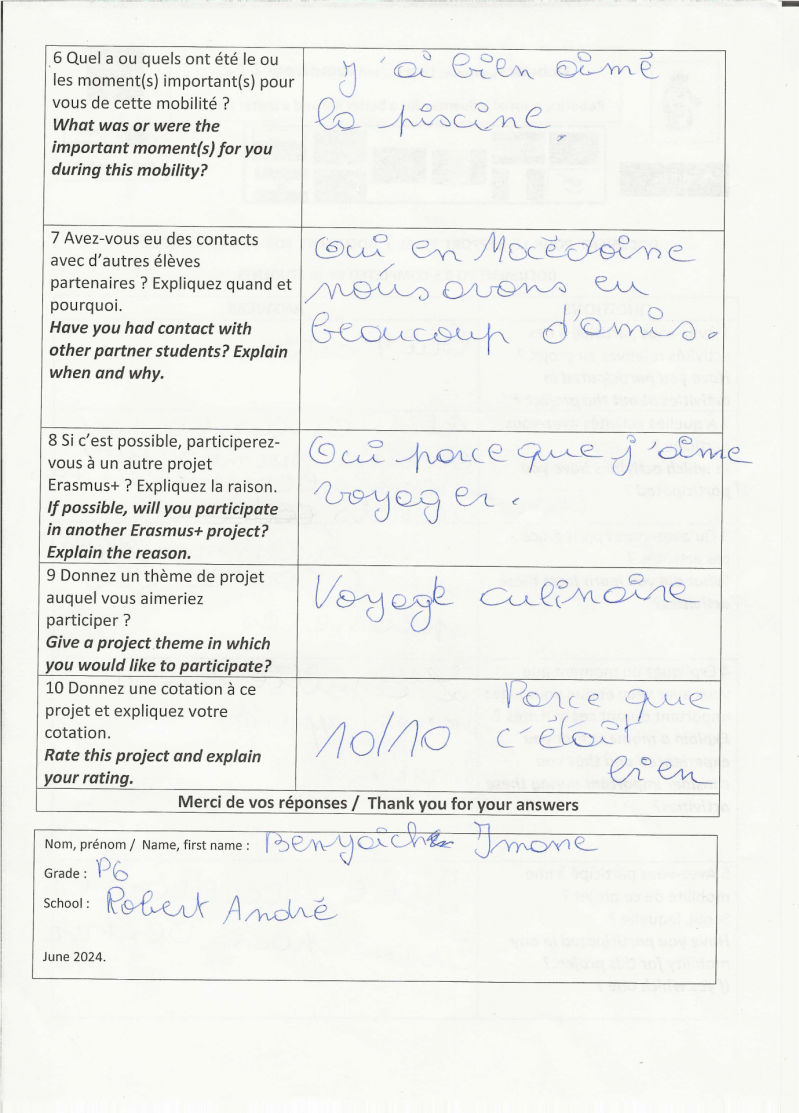 6 Quel a ou quels ont été le ou
les moment(s) important(s) pour
vous de cette mobilité ?
What was or were the
important moment(s) for you
during this mobility?
J'ai bien aimé
la piscine.
7 Avez-vous eu des contacts
avec d'autres élèves
partenaires ? Expliquez quand et
pourquoi.
Have you had contact with
other partner students? Explain
when and why.
Oui en Macédoine
nous avons eu
beaucoup d'amis.
8 Si c'est possible, participerez-
vous à un autre projet
Erasmus+ ? Expliquez la raison.
If possible, will you participate
in another Erasmus+ project?
Explain the reason.
Oui parce que j'aime
voyager.
9 Donnez un thème de projet
auquel vous aimeriez
participer ?
Give a project theme in which
you would like to participate?
Voyage culinaire
10 Donnez une cotation à ce
projet et expliquez votre
cotation.
Rate this project and explain
your rating.
10/10
Parce que
c'était
bien
Merci de vos réponses / Thank you for your answers
Nom, prénom / Name, first name : Imane
Grade : P6
School : Robert André
June 2024.